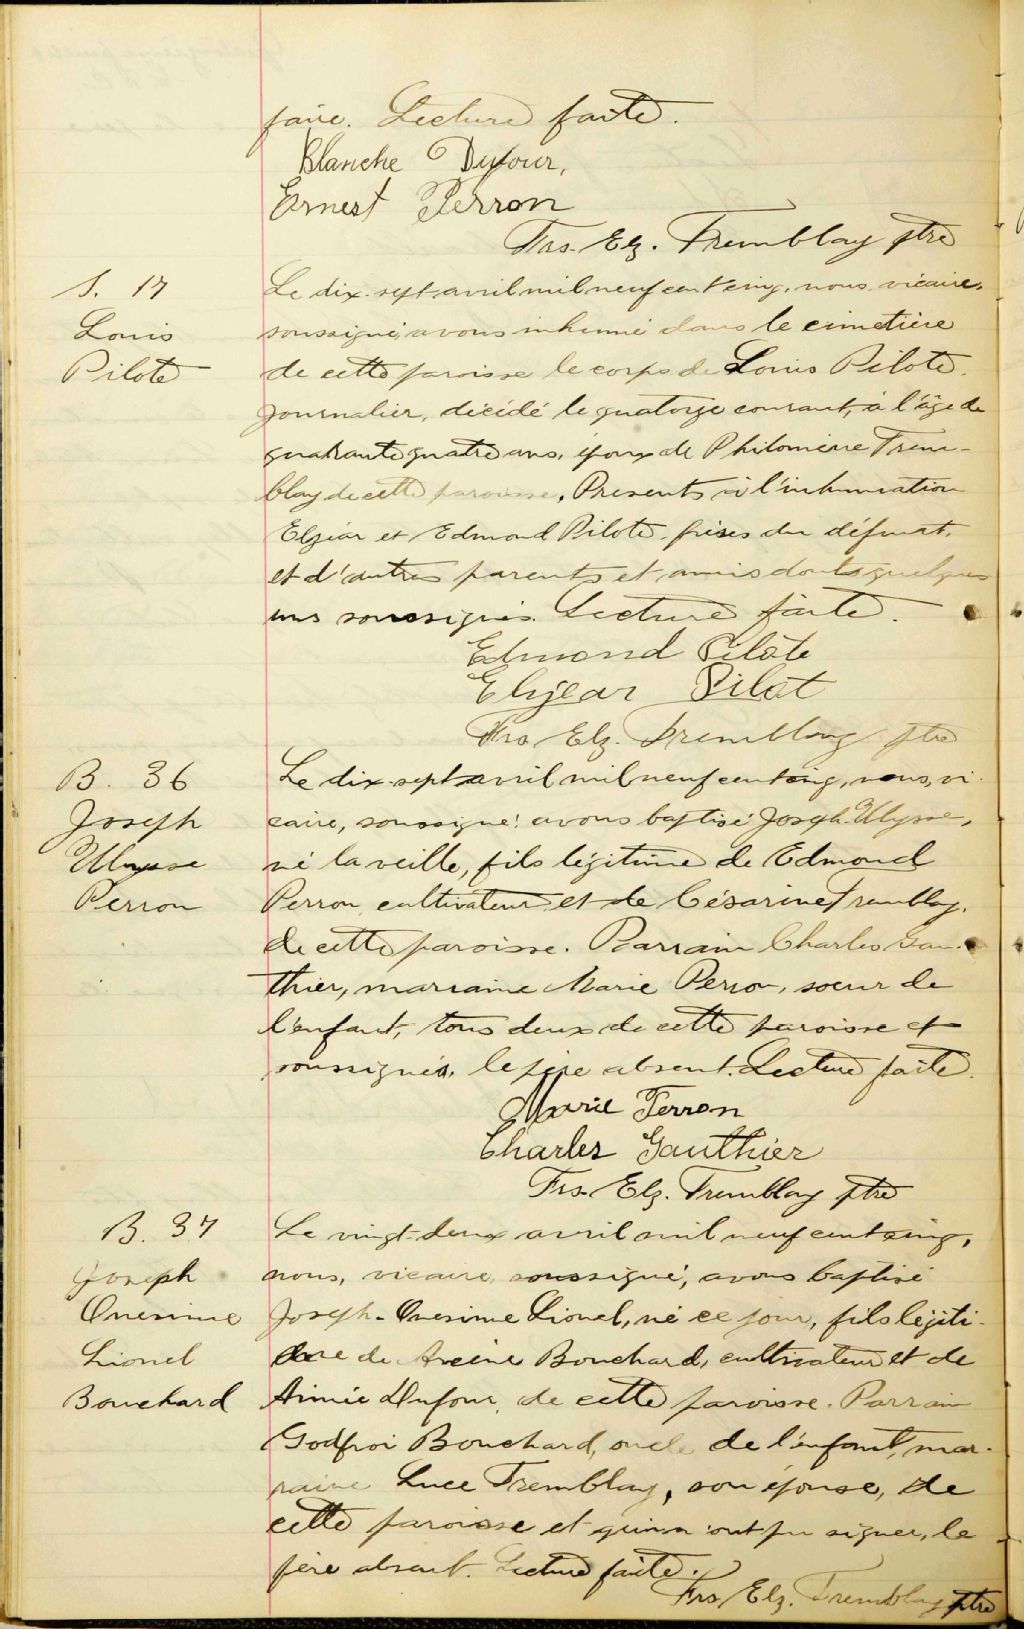 faire. Lecture faite.
Blanche Dufour,
Ernest Perron
Frs. Elz. Tremblay ptre
S. 17
Louis
Pilote
Le dix-sept avril mil neuf cent cinq, nous, vicaire,
soussigné, avons inhumé dans le cimetière
de cette paroisse le corps de Louis Pilote,
journalier, décédé le quatorze courant, à l'âge de
quarante quatre ans, époux de Philomène Trem-
blay de cette paroisse. Présents à l'inhumation
Elzéar et Edmond Pilote, frères du défunt,
et d'autres parents et amis dont quelques
uns soussignés. Lecture faite.
Edmond Pilote
Elzear Pilot
Frs Elz. Tremblay ptre
B. 36
Joseph
Ulysse
Perron
Le dix-sept avril mil neuf cent cinq, nous, vi-
caire, soussigné, avons baptisé Joseph-Ulysse,
né la veille, fils légitime de Edmond
Perron, cultivateur et de Césarine Tremblay,
de cette paroisse. Parrain Charles Gau-
thier, marraine Marie Perron, soeur de
l'enfant, tous deux de cette paroisse et
soussignés, le père absent. Lecture faite.
Marie Perron
Charles Gauthier
Frs. Elz. Tremblay ptre
B. 37
Joseph
Onesime
Lionel
Bouchard
Le vingt-deux avril mil neuf cent cinq,
nous, vicaire, soussigné, avons baptisé
Joseph-Onesime Lionel, né ce jour, fils légiti-
me de Bouchard, cultivateur et de
Aimée Dufour, de cette paroisse. Parrain
Godfroi Bouchard, oncle de l'enfant, mar-
raine Luce Tremblay, son épouse, de
cette paroisse et qui n'ont pu signer, le
père absent. Lecture faite.
Frs Elz. Tremblay ptre